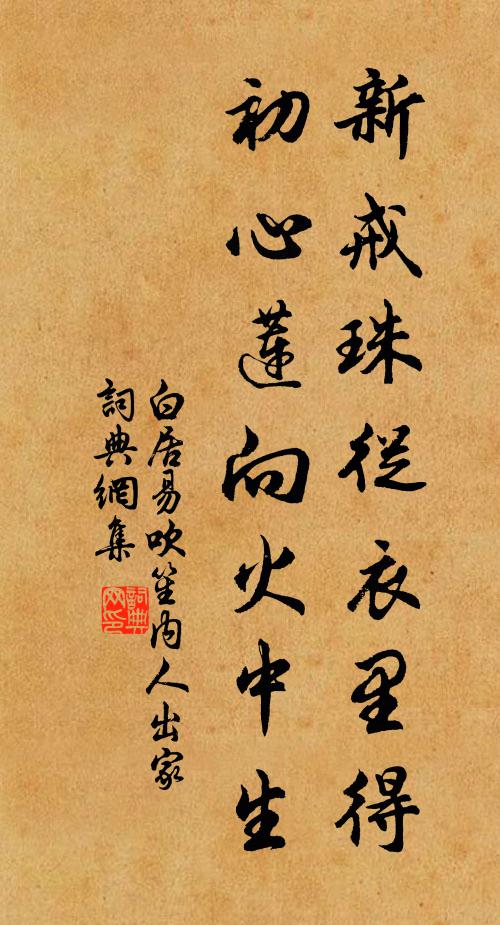 新戒珠從衣里得
初心蓮向火中生
白居易吹笙內人出家
詞典網集
詞典
网印